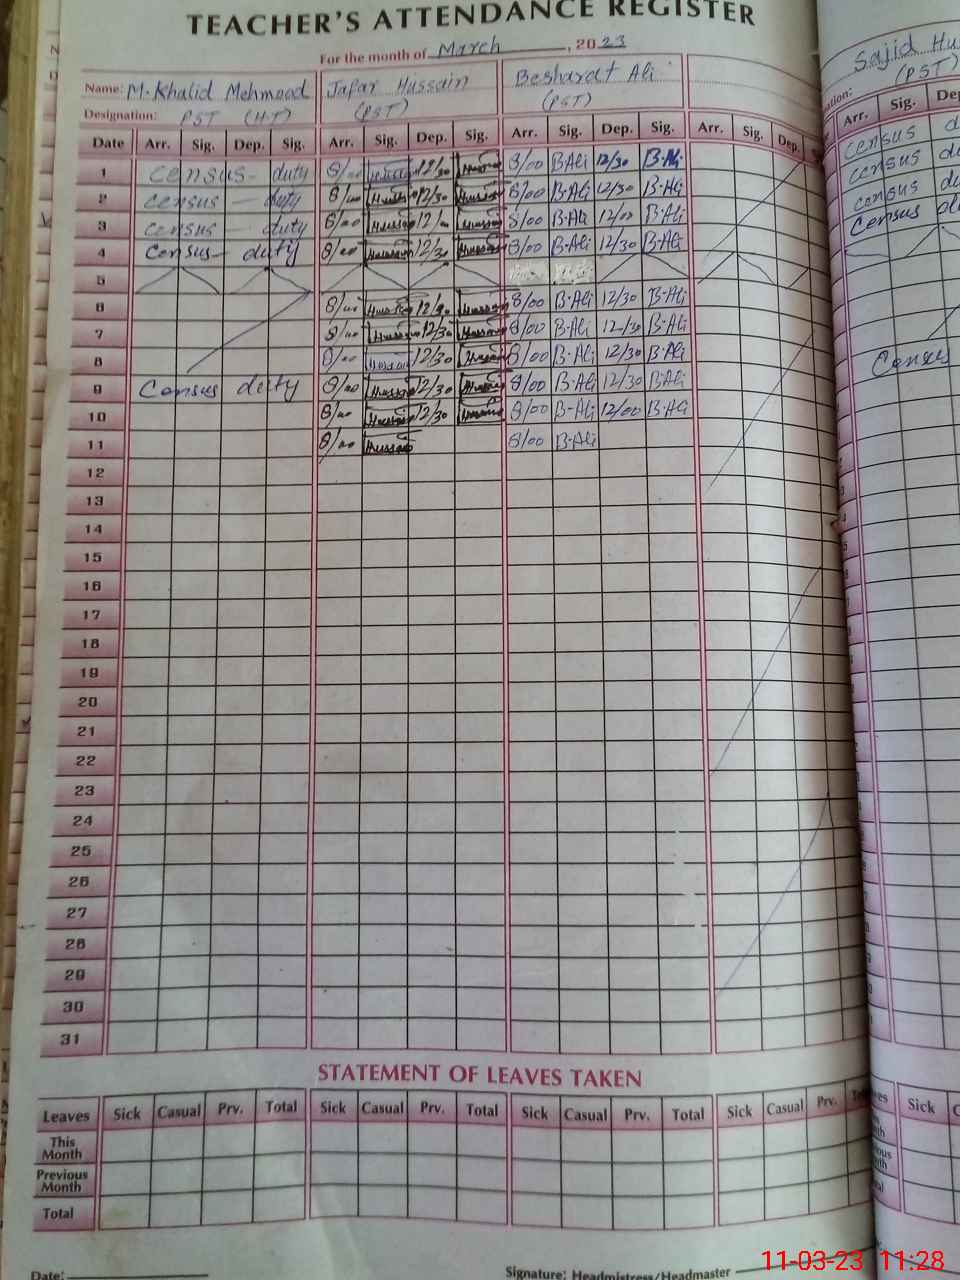 TEACHER'S ATTENDANCE REGISTER
For the month of March, 2023
Name: M. Khalid Mehmood Jafar Hussain Beshardt Ali Sajid Hu
Designation: PST (HT) (PST) (PST) (PST)
Date Arr. Sig. Dep. Sig. Arr. Sig. Dep. Sig. Arr. Sig. Dep. Sig. Arr. Sig. Dep. Arr. Sig. De
1 census - duty 8/00 Hussain 12/30 Hussain 8/00 B.Ali 12/30 B.Ali census d
2 census - duty 8/00 Hussain 12/30 Hussain 8/00 B.Ali 12/30 B.Ali census du
3 census - duty 8/00 Hussain 12/00 Hussain 8/00 B.Ali 12/00 B.Ali census du
4 census - duty 8/00 Hussain 12/30 Hussain 8/00 B.Ali 12/30 B.Ali census du
5
6 8/00 Hussain 12/30 Hussain 8/00 B.Ali 12/30 B.Ali
7 8/00 Hussain 12/30 Hussain 8/00 B.Ali 12/30 B.Ali
8 8/00 Hussain 12/30 Hussain 8/00 B.Ali 12/30 B.Ali
9 Census duty 8/00 Hussain 12/30 Hussain 8/00 B.Ali 12/30 B.Ali Census
10 8/00 Hussain 12/30 Hussain 8/00 B.Ali 12/00 B.Ali
11 8/00 Hussain 8/00 B.Ali
12
13
14
15
16
17
18
19
20
21
22
23
24
25
26
27
28
29
30
31
STATEMENT OF LEAVES TAKEN
Leaves Sick Casual Prv. Total Sick Casual Prv. Total Sick Casual Prv. Total Sick Casual Prv. Sick
This Month
Previous Month
Total
Date: Signature: Headmistress/Headmaster
11-03-23 11:28